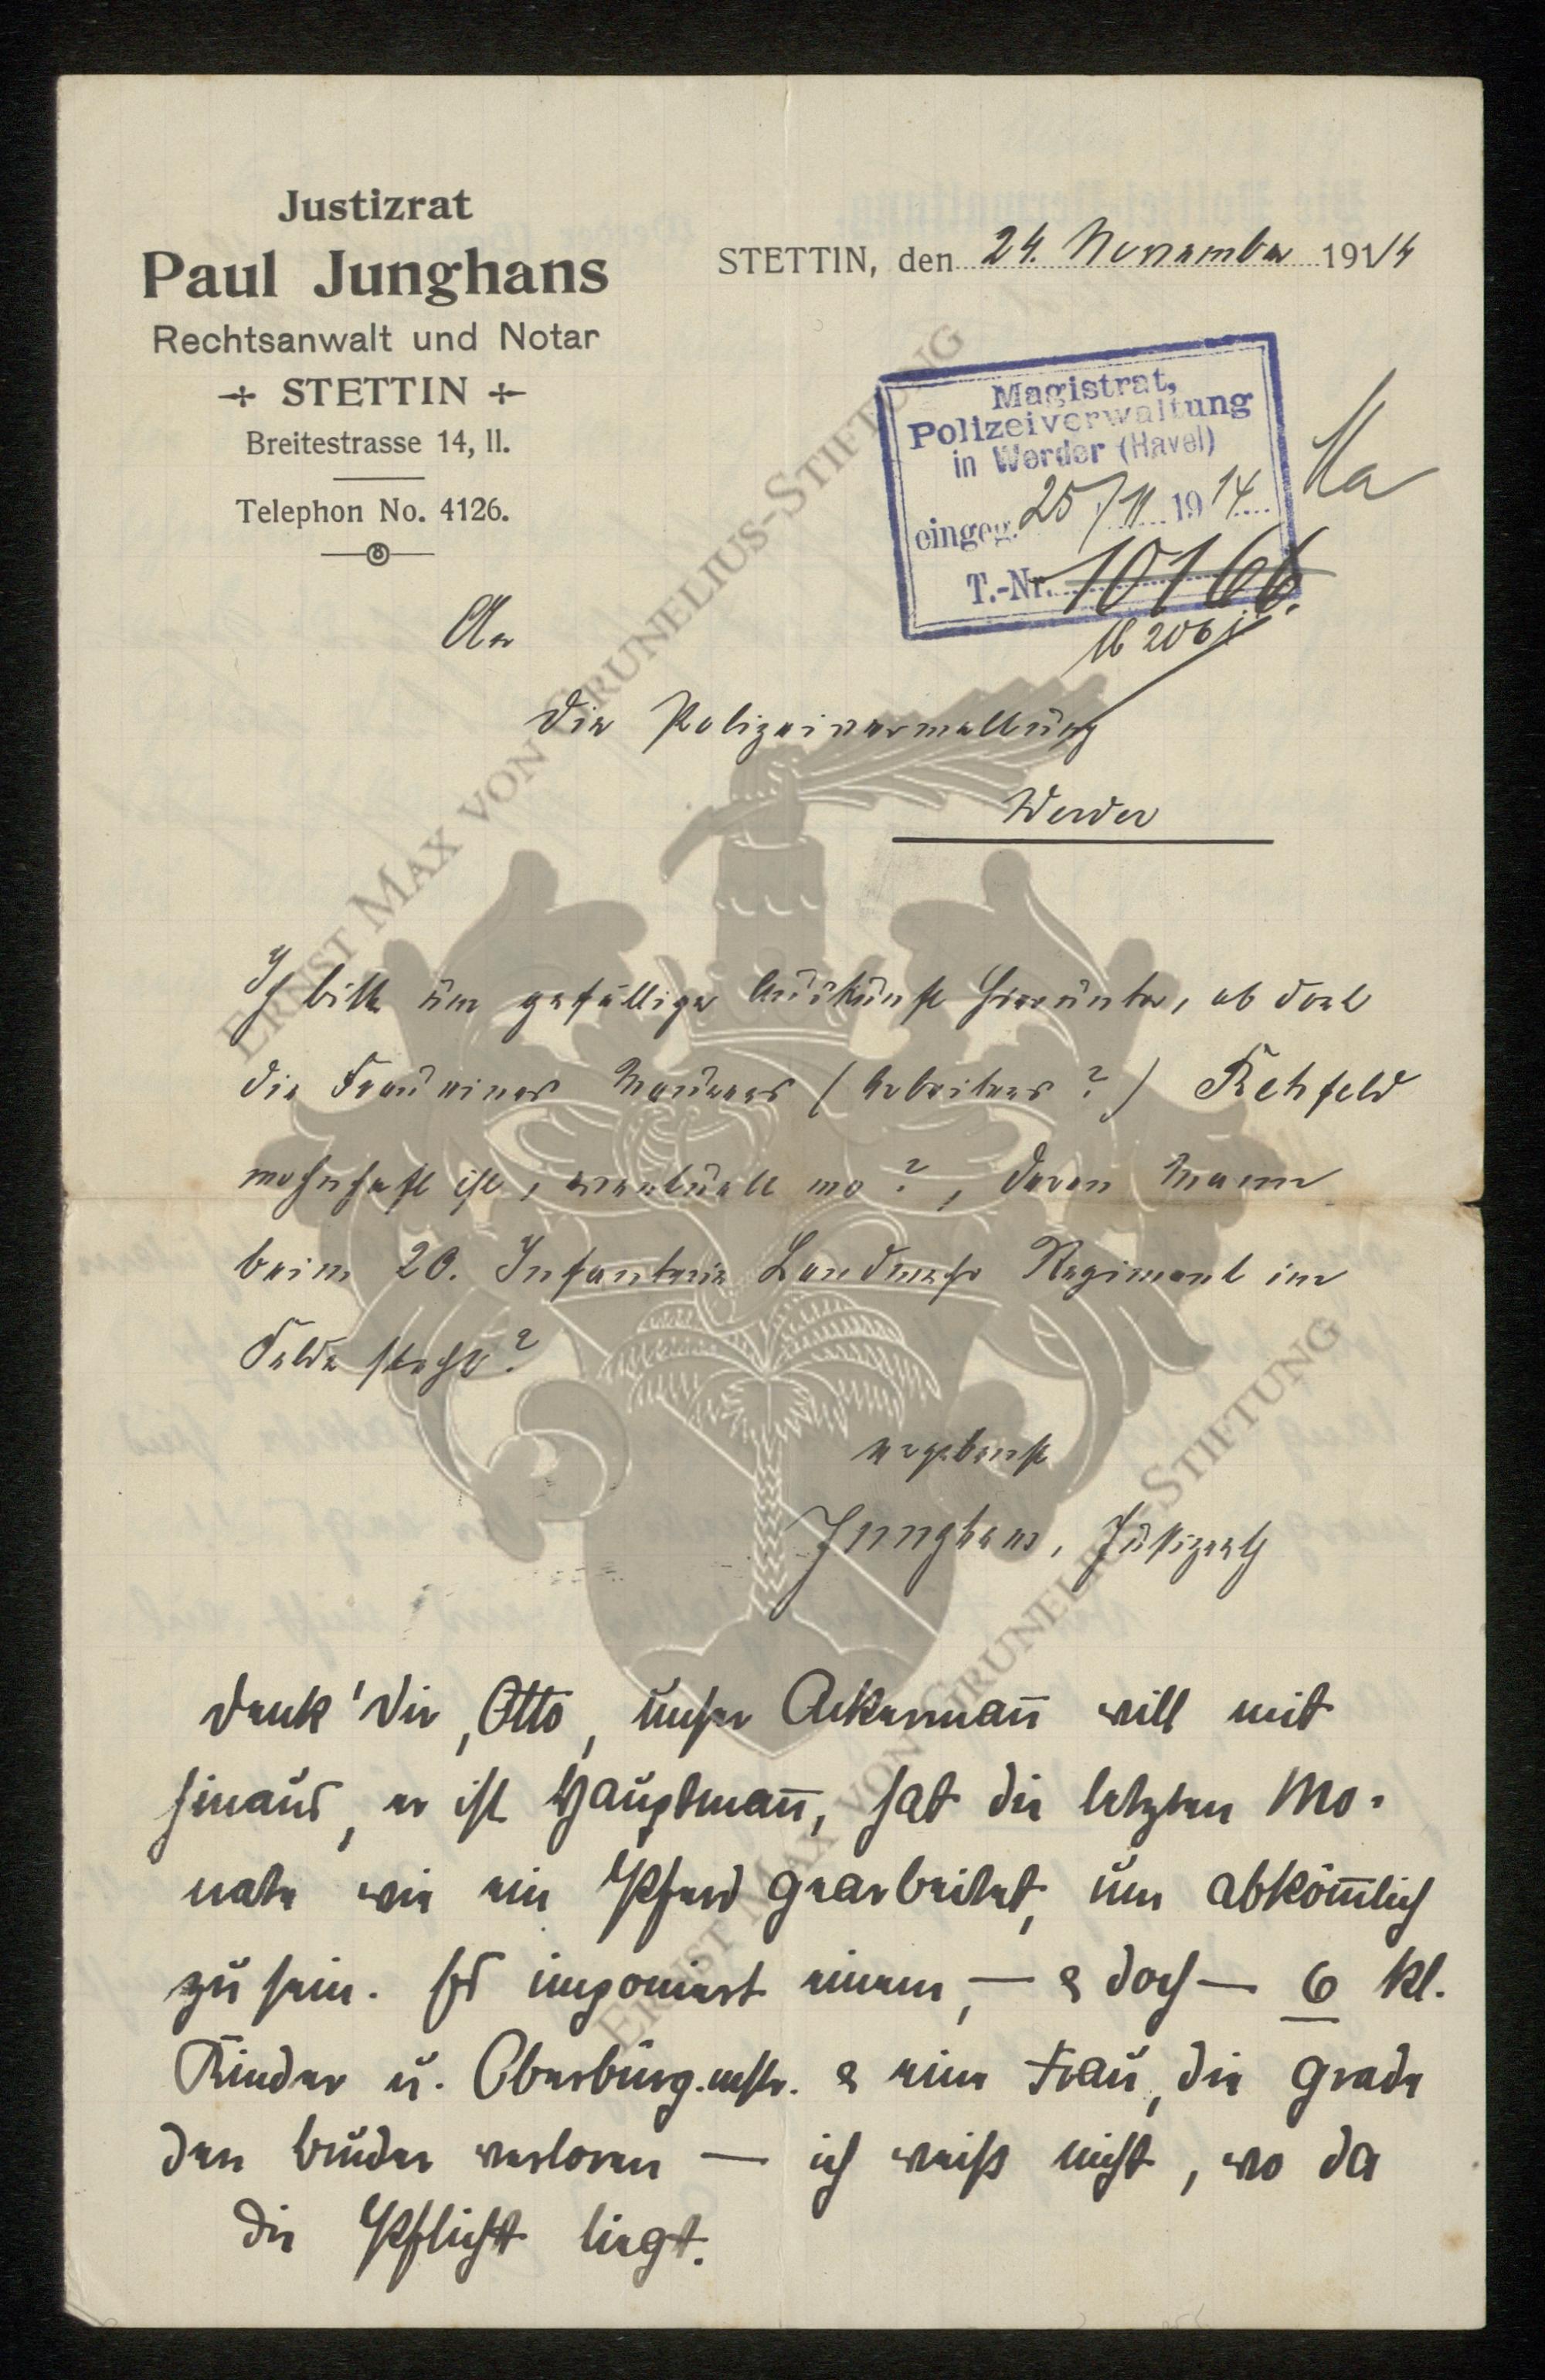 Justizrat
Paul Junghans
Rechtsanwalt und Notar
STETTIN
Breitestrasse 14, II.
Telephon No. 4126.
STETTIN, den 24. November 1914
Magistrat,
Polizeiverwaltung
in Werder (Havel)
eingeg. 25/11 1914
T.-Nr. 10166.
An
die Polizeiverwaltung
Werder
Ich bitte um gefällige Auskunft hierunter, ob dort
die Frau eines Maurers (Arbeiters?) Rehfeld
wohnhaft ist, eventuell wo?, deren Mann
beim 20. Infanterie Landwehr Regiment im
Felde steht?
ergebenst
Junghans, Justizrath
Denk' Dir, Otto, unser Ackermann̄ will mit
hinaus, er ist Hauptman̄, hat die letzten Mo-
nate wie ein Pferd gearbeitet, um abköm̄lich
zu sein. Es imponiert einem, — & doch — 6 kl.
Kinder u. Oberbürg.mstr. & eine Frau, die grade
den Bruder verloren — ich weiß nicht, wo da
die Pflicht liegt.
ERNST MAX VON GRUNELIUS-STIFTUNG
ERNST MAX VON GRUNELIUS-STIFTUNG